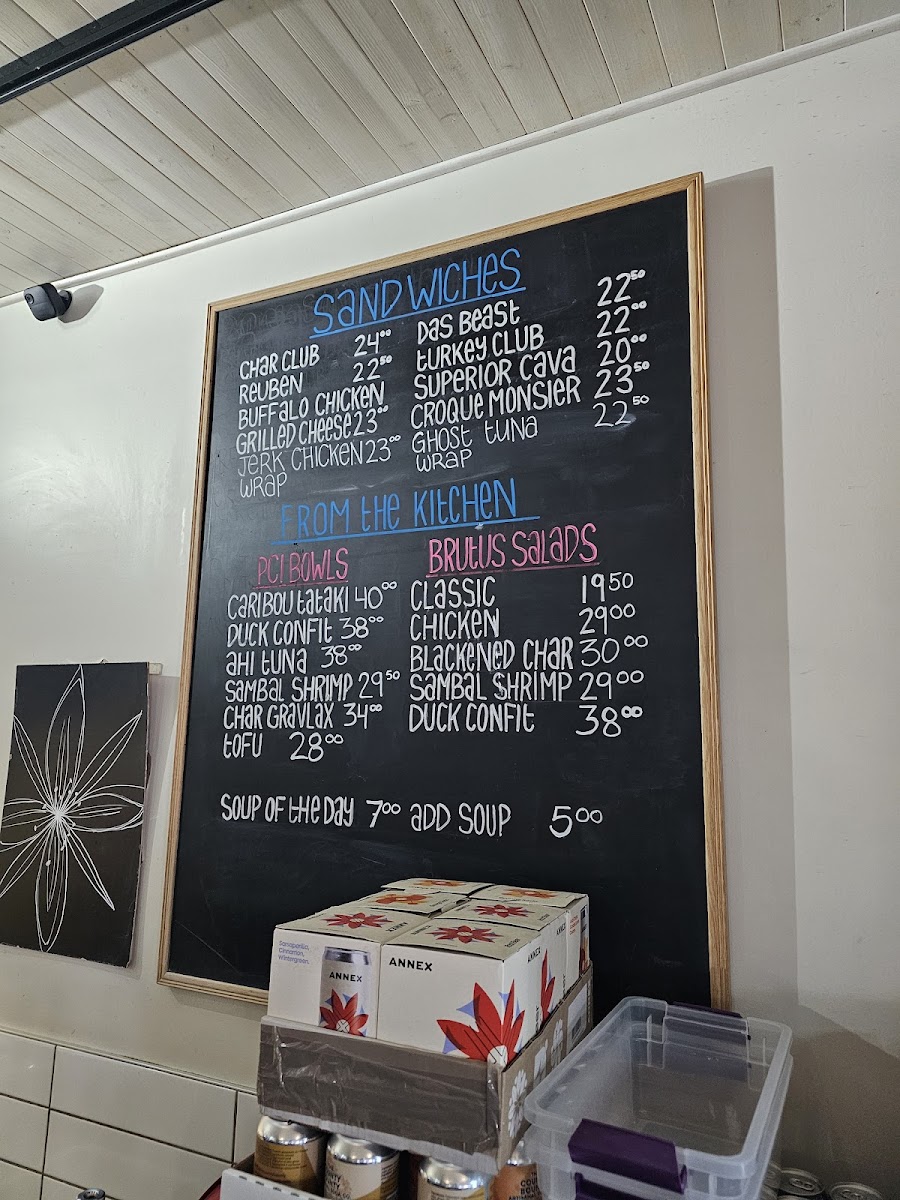 SANDWICHES
CHAR CLUB 24⁰⁰
REUBEN 22⁵⁰
BUFFALO CHICKEN
GRILLED CHEESE 23⁰⁰
JERK CHICKEN 23⁰⁰
WRAP
DAS BEAST 22⁵⁰
TURKEY CLUB 22⁰⁰
SUPERIOR CAVA 20⁰⁰
CROQUE MONSIER 23⁵⁰
GHOST TUNA 22⁵⁰
WRAP
FROM THE KITCHEN
PCI BOWLS
CARIBOU TATAKI 40⁰⁰
DUCK CONFIT 38⁰⁰
AHI TUNA 38⁰⁰
SAMBAL SHRIMP 29⁵⁰
CHAR GRAVLAX 34⁰⁰
TOFU 28⁰⁰
BRUTUS SALADS
CLASSIC 19⁵⁰
CHICKEN 29⁰⁰
BLACKENED CHAR 30⁰⁰
SAMBAL SHRIMP 29⁰⁰
DUCK CONFIT 38⁰⁰
SOUP OF THE DAY 7⁰⁰ ADD SOUP 5⁰⁰
Sarsaparilla,
Cinnamon,
Wintergreen.
ANNEX
ANNEX